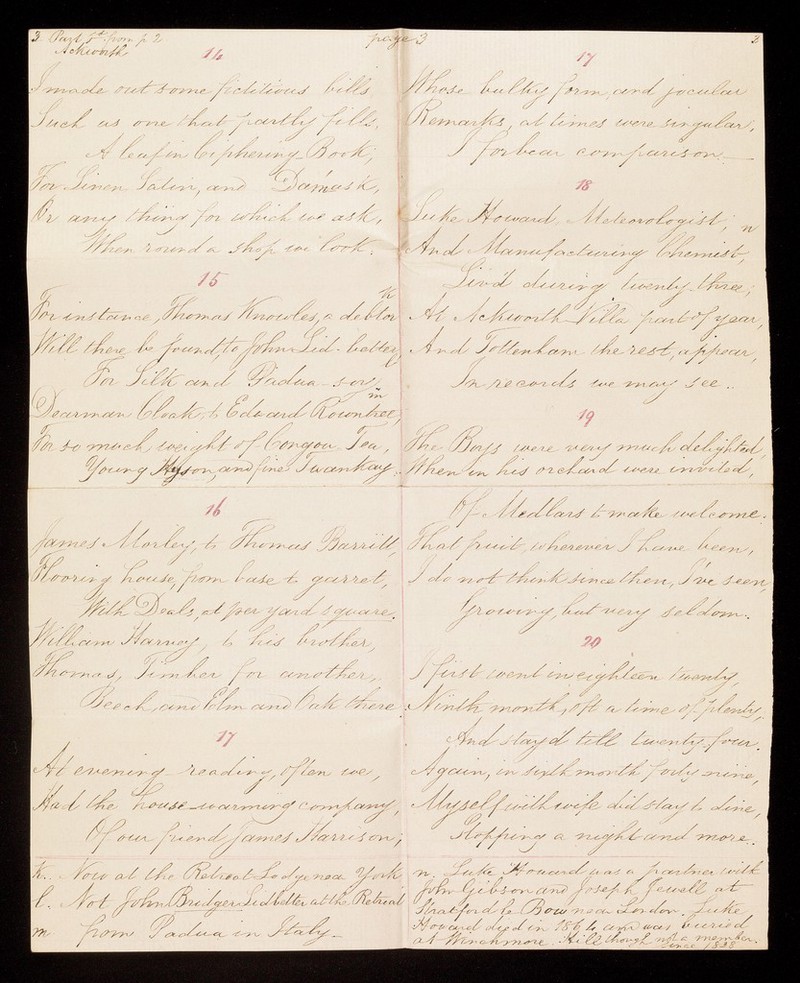 3 Part 1st from p 2 page 3 3
Ackworth
14
I made out some fictitious bills
Such as one that partly fills,
A leaf in Ciphering-Book;
For Linen Satin, and Damask,
Or any thing for which we ask,
When round a shop we look.
15
For instance, Thomas Knowles, a debtor k
Will there be found, to John Lid-better l
For Silk and Padua-soy m
Dearman Cloak, to Edward Rowntree,
For so much weight of Congou Tea,
Young Hyson, and fine Twankay.
16
James Morley, to Thomas Barritt,
Flooring house, from base to garret,
With Deals, at per yard square.
William Harvey, to his brother,
Thomas, Timber for another,
Beech, and Elm and Oak there
17
At evening reading, often we,
Had the house-warming company,
Of our friend James Harrison;
k. Now at the Retreat Lodge near York
l. Not John Bridger Lidbetter at the Retreat
m from Padua in Italy-
17
Whose bulky form, and jocular
Remarks, at times were singular,
I forbear comparison.-
18
Luke Howard, Meteorologist; n
And Manufacturing Chemist,
Liv'd during twenty three;
At Ackworth Villa part of year,
And Tottenham the rest, appear,
In records we may see..
19
The Boys were very much delighted,
When in his orchard were invited,
Of Medlars to make welcome.
That fruit, wherever I have been,
I do not think since then, I've seen,
Growing, but very seldom.
20
I first went in eighteen twenty,
Ninth month, oft a time of plenty,
And stay'd till twenty four.
Again, in sixth month forty nine,
Myself with wife did stay to dine,
Stopping a night and more..
n. Luke Howard was a partner with
John Gibson and Joseph Jewell at
Stratford le Bow near London. Luke
Howard died in 1864 and was buried
at Winchmore Hill though not a member.
since 1838